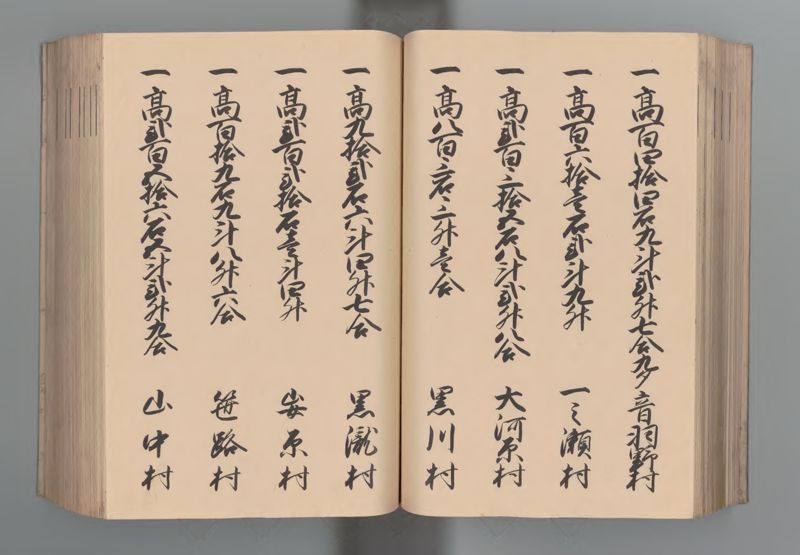 一高百四拾四石九斗弐升七合九夕 音羽野村
一高百六拾壱石弐斗九升 一之瀬村
一高弐百三拾五石八斗弐升八合 大河原村
一高八百三石三升壱合 黒川村
一高九拾弐石六斗四升七合 黒瀧村
一高弐百弐拾石壱斗四升 安原村
一高百拾九石九斗八升六合 笹路村
一高弐百五拾六石五斗弐升九合 山中村